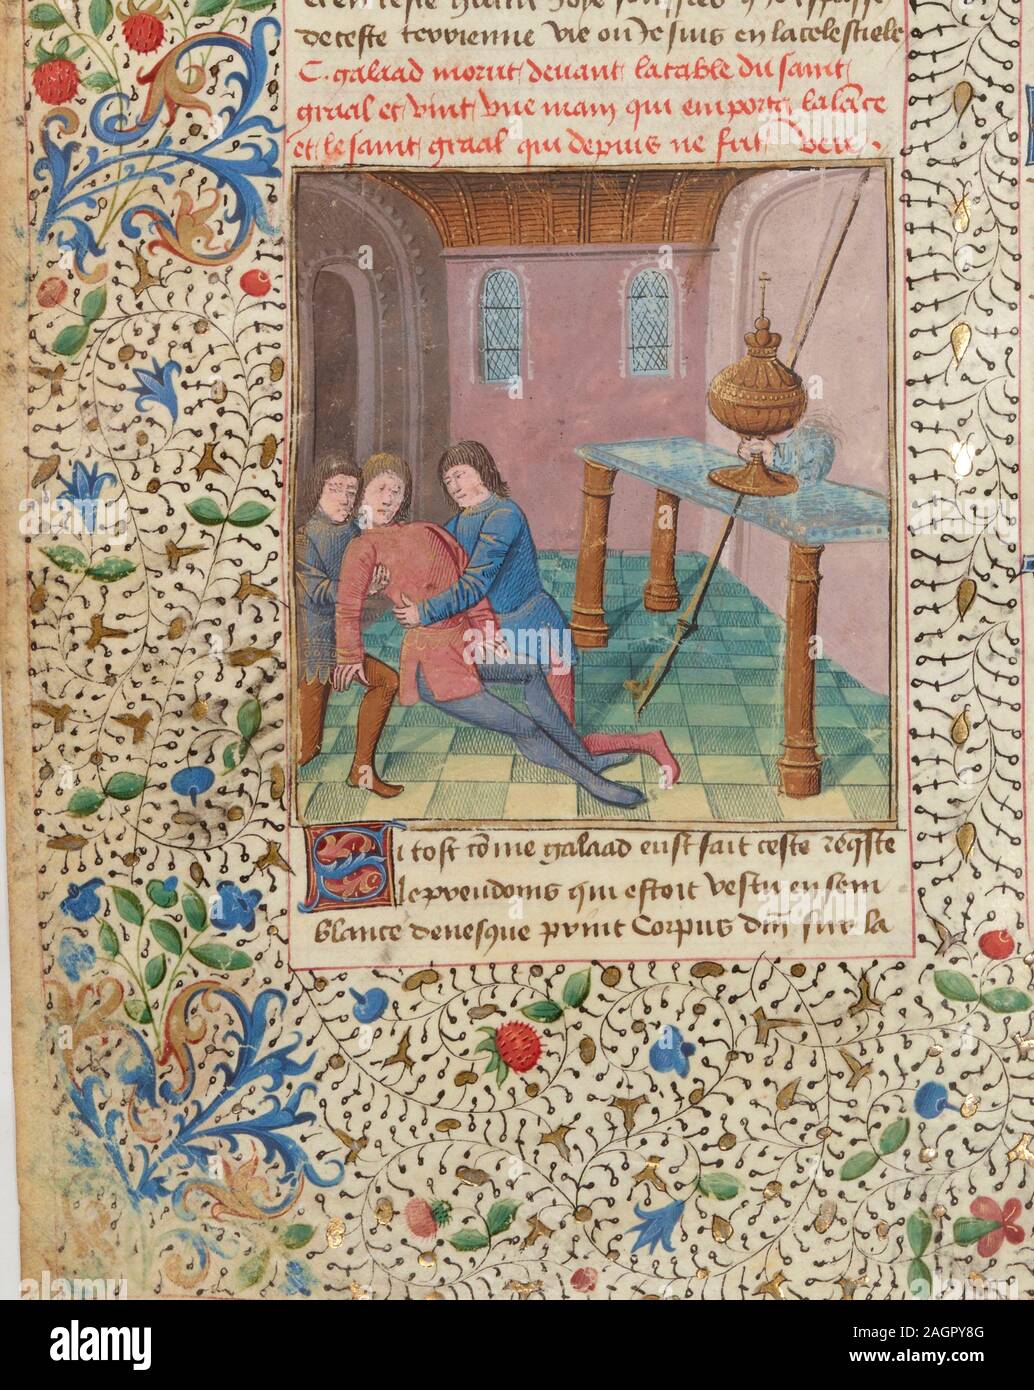 de ceste terrienne vie ou Je suis en la celestiele
C. galaad morut devant la table du saint
graal et vint vne main qui emporta la lance
et le saint graal qui depuis ne fut veu.
Si tost cōme galaad eust fait ceste reqste
le preudoms qui estoit vestu en sem
blance devesque prinit Corpus dm̄ sur la
alamy
alamy stock photo
Image ID: 2AGPY8G
www.alamy.com